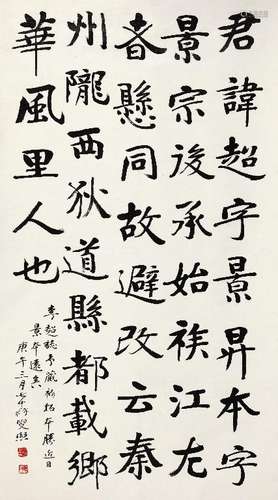 君諱超字景昇本字
景宗後承始族江左
者懸同故避改云秦
州隴西狄道縣都載鄉
華風里人也
李超誌予藏初拓本勝近日
景本遠矣
庚午三月